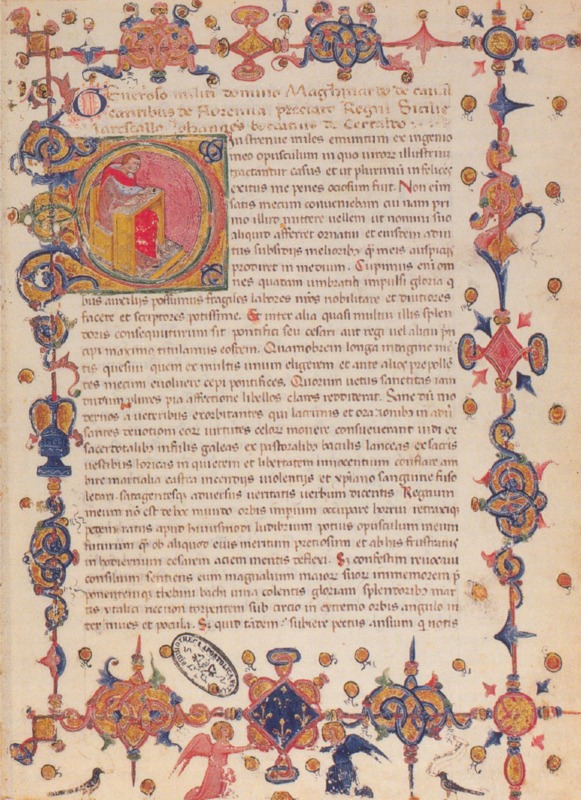 Generoso militi domino Maghinardo de caval
cantibus de florentia preclaro Regni Sicilie
marescallo Johannes bocatius de Certaldo
strenue miles emunctum ex ingenio
meo opusculum in quo virorum illustrium
tractantur casus et ut plurimum infelices
exitus me penes ociosum fuit. Non enim
satis mecum conveniebam cui nam pri
mo illud mittere vellem ut nomini suo
aliquid afferret ornatus et eiusdem adiu
tus subsidijs melioribus quam meis auspicijs
prodiret in medium. Cupimus enim om
nes quadam umbratili impulsi gloria
bus amelijs possumus fragiles labores nostros nobilitare et diutiores
facere et scriptores potissime. Et inter alia quasi multum illis splen
doris consequuturum sit pontifici seu cesari aut regi vel alicui prin
cipi maximo titulamus eosdem. Quamobrem longa indagine mec
tis quesivi quem ex multis unum eligerem et ante alios prepollen
tes mecum evolvere cepi pontifices. Quorum vetus sanctitas iam
dudum plures pia affectione libellos claros reddiderat. Sane dum mo
dernos a veteribus exorbitantes qui lacrimis et orationibus in adver
santes devotionem eorum virtutes celorum movere consueverant vidi ex
sacerdotalibus infulis galeas ex pastoralibus baculis lanceas ex sacris
vestibus loricas in quietem et libertatem innocentum conflare am
bire martialia castra incendijs violentijs et xpiano sanguine fuso
letari satagentesque adversus veritatis verbum dicentis Regnum
meum non est de hoc mundo orbis imperium occupare horrui retraxique
pedem ratus apud huiusmodi ludibrium potius opusculum meum
futurum quam ob aliquod eius meritum pretiosum et ab his frustratus
in hodiernum cesarem aciem mentis deflexi. Sed confestim revocavi
consilium sentiens eum magnalium maiorum suorum immemorem pre
ponentemque thebani bachi vina colentis gloriam splendoribus mar
tis ytalici necnon torpentem sub circio in extremo orbis angulo in
ter nives et pocula. Sed quid tandem subiere pectus ausum